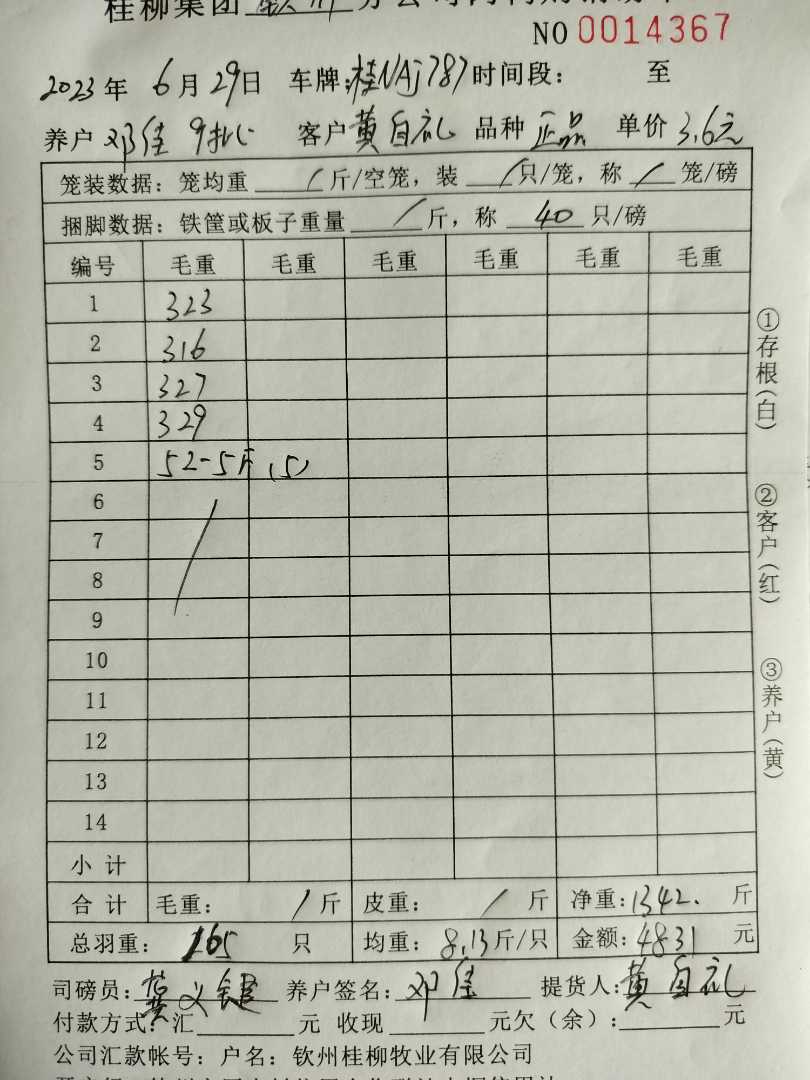 桂柳集团 钦州 分公司
NO 0014367
2023年 6月29日 车牌:桂NAJ787 时间段: 至
养户 邓佳 9批 客户 黄自礼 品种 正品 单价 3.6元
笼装数据: 笼均重 / 斤/空笼, 装 / 只/笼, 称 / 笼/磅
捆脚数据: 铁筐或板子重量 / 斤, 称 40 只/磅
编号 毛重 毛重 毛重 毛重 毛重 毛重
1 323
2 316
3 327
4 329
5 52-5斤 (5)
6
7
8
9
10
11
12
13
14
小计
合计 毛重: / 斤 皮重: / 斤 净重:1342. 斤
总羽重: 165 只 均重: 8.13斤/只 金额: 4831 元
司磅员: 义键 养户签名: 邓佳 提货人: 黄自礼
付款方式: 汇 元 收现 元欠(余): 元
公司汇款帐号: 户名: 钦州桂柳牧业有限公司
①存根(白)
②客户(红)
③养户(黄)